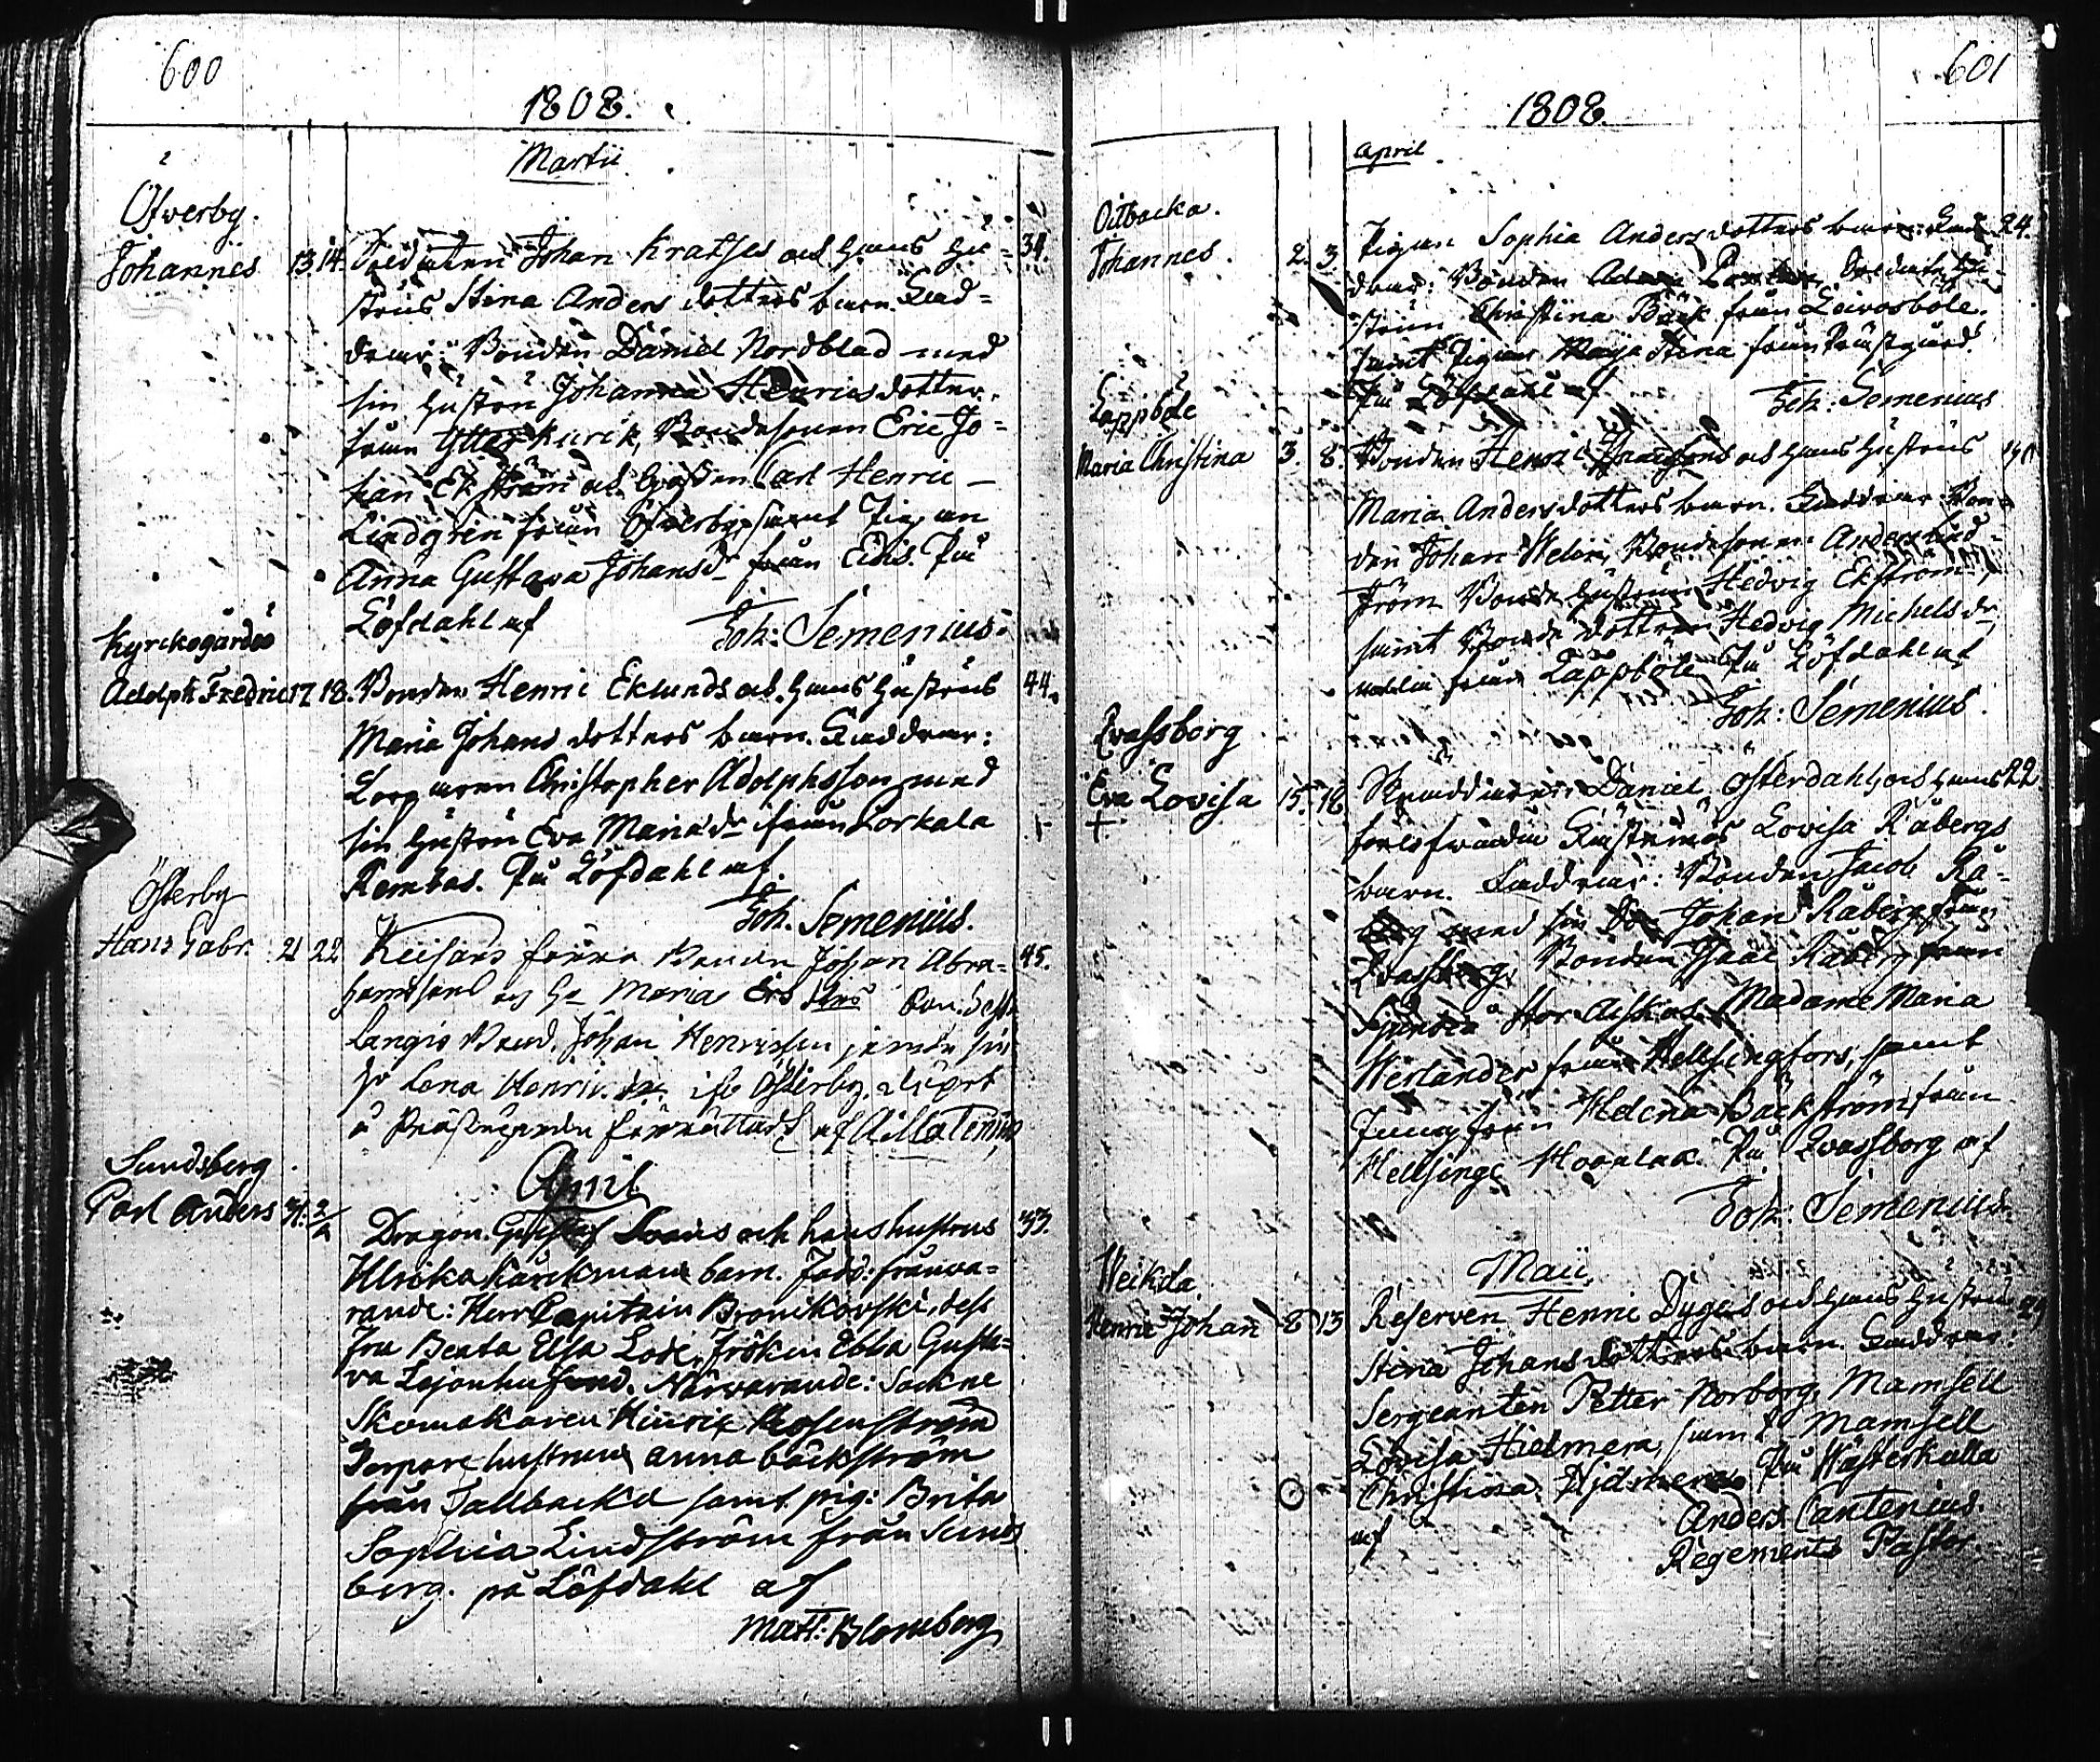 600
1808.
Martii
Öfwerby.
Johannes 13. 14. Soldaten Johan Kratses och hans hu= 31.
strus Stina Anders dotters barn. Fad=
drar: Bonden Daniel Nordblad med
sin hustru Johanna Henrics dotter,
från Ytterkurck, Bondesonen Eric Jo=
han Ekström och Gossen Carl Henric
Lindgren från Öfwerby, samt Pigan
Anna Gustava Johansdr från Edis. På
Löfdahl af Joh: Semenius.
Kyrckogårds
Adolph Fredric 17 18. Bonden Henric Eklunds och hans hustrus 44.
Maria Johans dotters barn. Faddrar:
Christopher Adolphsson med
sin hustru Eva Maria dr från Lorkala
Rembas. På Löfdahl af
Joh. Semenius.
Österby
Hans Gabr. 21 22 Johan Abra= 45.
hamsons och h Maria Ers
Langis Johan Henricsson jämte sin
h Lena Henric. dr. Österby. döpt
å Prästegården förrättadt af
April
Sundsberg
Carl Anders 31. 2/4 Dragon. Gustaf Svans och hans hustrus 33.
Ulrika barn. Fadd: frånva=
rande: Herr Capitain Bronikovski, dess
Fru Beata Elsa Lode, Fröken Ebba Gusta=
va Lejonhufvud. Närvarande: Sockne
Skomakaren Hinric Rosenström
Torpare hustrun Anna Bäckström
från Tallbacka samt pig: Brita
Sophia Lindström från Sunds
berg. på Löfdahl af
Matt: Blomberg
601
1808.
April
Oitbacka.
Johannes. 2. 3 Pigan Sophia Anders dotters barn: Fad= 24.
drar: Bonden Soldate hu=
strun Christina Bäck från Leivosböle.
samt Pigan Maja Stina från Prästgård.
På Löfdahl af Joh: Semenius
Lappböle
Maria Christina 3. 8. Bonden Henric och hans hustrus
Maria Anders dotters barn. Faddrar: Bon=
den Johan Welin, Bondesonen Anders Lind=
ström Bonde hustrun Hedvig Ekström,
samt Bonde dottren Hedvig Michelsdr
från Lappböle. På Löfdahl af
Joh: Semenius.
Qvassborg
Eva Lovisa 15. 18. Skräddaren Daniel Österdahls och hans 22
+ Lovisa Råbergs
barn. Faddrar: Bonden Jacob Rå=
berg med sin Johan Råberg från
Qvassborg, Bonden Isaac Råberg från
Sjundeå Madame Maria
Werlander från Hellsingfors, samt
Jungfrun Helena Bäckström från
Hellsinge Hoplax. På Qvassborg af
Joh: Semenius.
Maii.
Weikola.
Henric Johan 8 13 Reserven Henric Dygers och hans hustrus 29
Stina Johans dotters barn. Faddrar:
Sergeanten Petter Norborg, Mamsell
Lovisa Hielmera, samt Mamsell
Christina På Wästerkulla
af Anders Cantenius.
Regements Pastor.